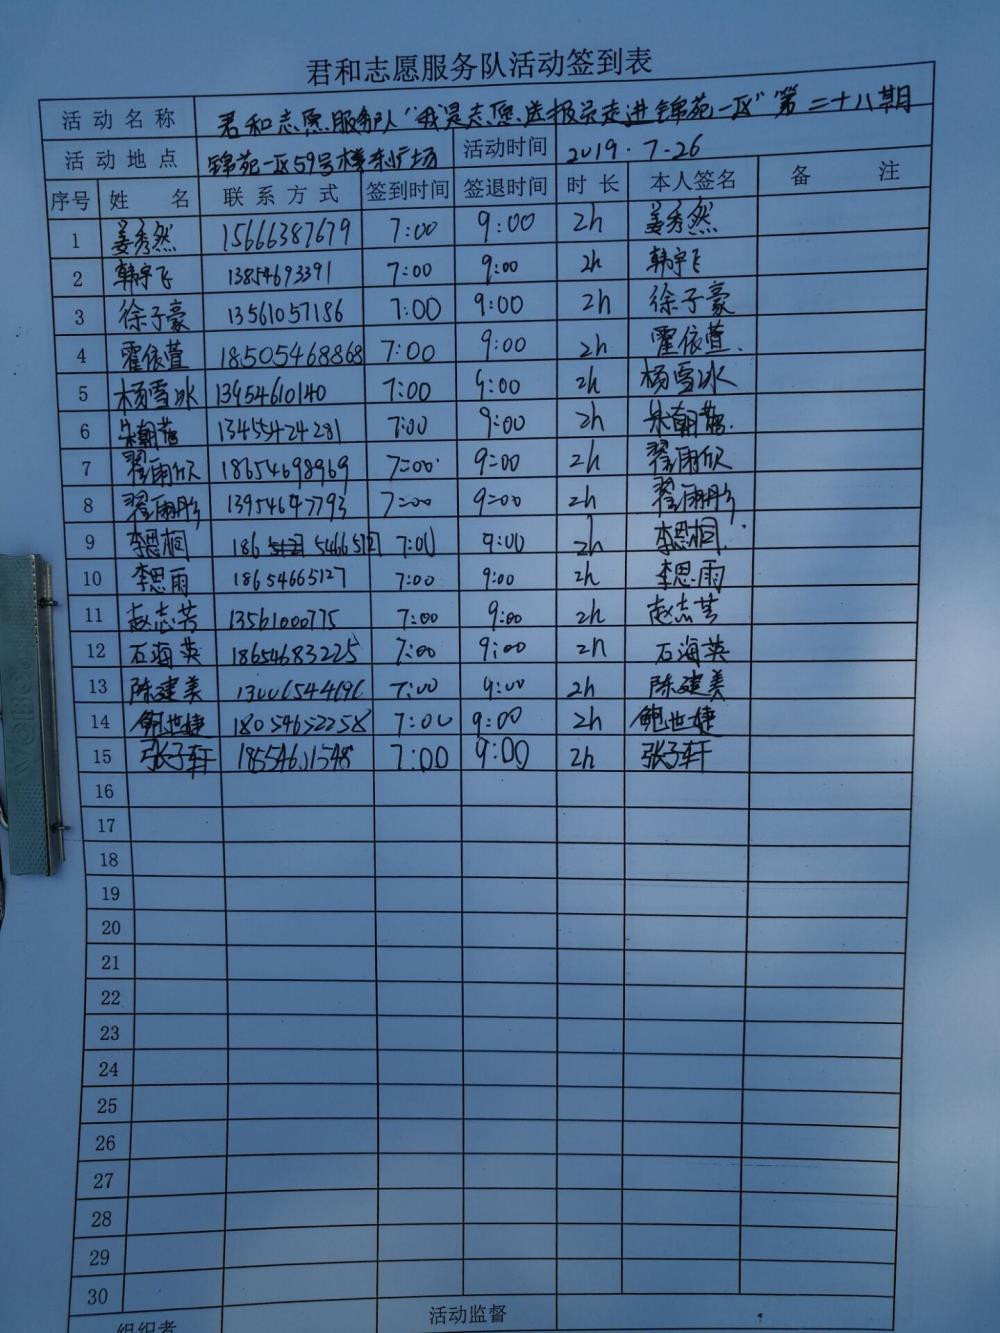 君和志愿服务队活动签到表
活动名称 君和志愿服务队“我是志愿送报员走进锦苑一区”第二十八期
活动地点 锦苑一区59号楼东广场 活动时间 2019.7.26
序号 姓名 联系方式 签到时间 签退时间 时长 本人签名 备注
1 姜秀然 15666387679 7:00 9:00 2h 姜秀然
2 韩宇飞 13854693391 7:00 9:00 2h 韩宇飞
3 徐子豪 13561057186 7:00 9:00 2h 徐子豪
4 霍依萱 18505468868 7:00 9:00 2h 霍依萱.
5 杨雪冰 13954610140 7:00 9:00 2h 杨雪冰
6 13455424281 7:00 9:00 2h
7 翟雨欣 18654698969 7:00 9:00 2h 翟雨欣
8 翟雨彤 13954647793 7:00 9:00 2h 翟雨彤
9 李思桐 186 54665127 7:00 9:00 2h 李思桐
10 李思雨 18654665127 7:00 9:00 2h 李思雨
11 赵志芳 13561000775 7:00 9:00 2h 赵志芳
12 石海英 18654683225 7:00 9:00 2h 石海英
13 陈建美 13006544696 7:00 9:00 2h 陈建美
14 鲍世婕 18054652258 7:00 9:00 2h 鲍世婕
15 张子轩 18554611548 7:00 9:00 2h 张子轩
16
17
18
19
20
21
22
23
24
25
26
27
28
29
30
组织者 活动监督